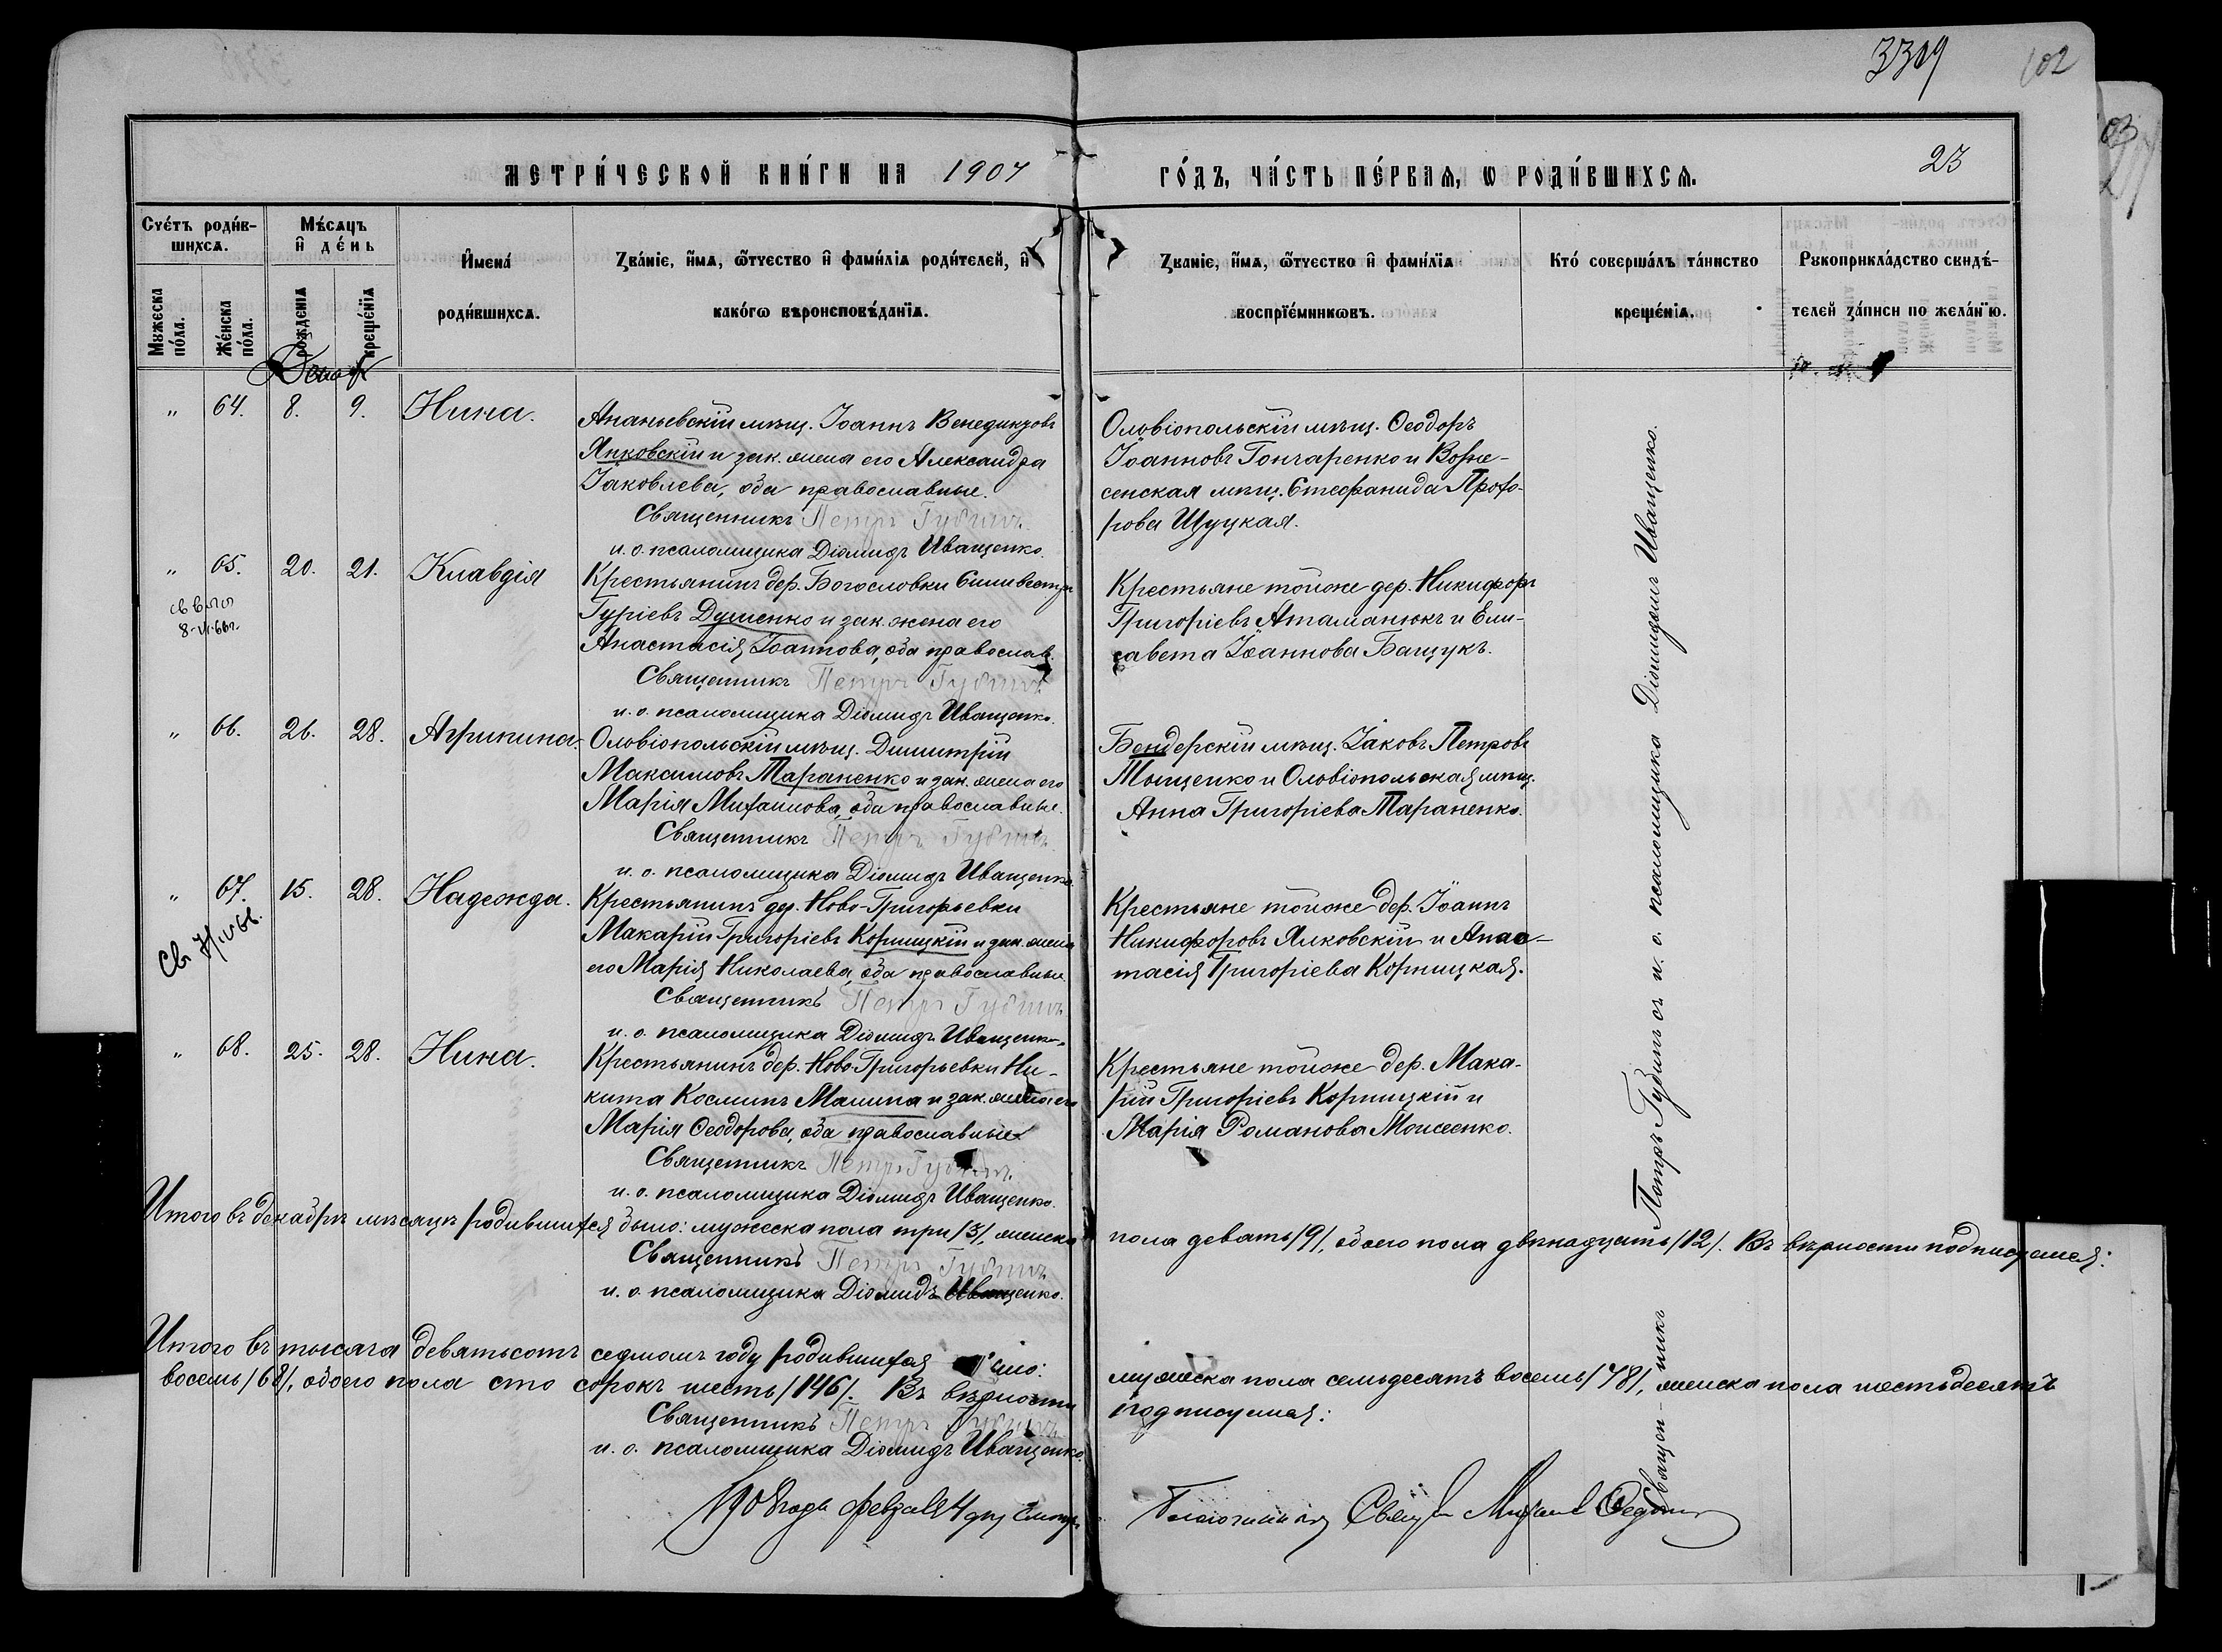 3309
102
МЕТРИ́ЧЕСКОЙ КНИ́ГИ НА 1907 ГО́ДЪ, ЧА́СТЬ ПЕ́РВАЯ, Ѡ РОДИ́ВШИХСЯ.
23
Сче́тъ роди́в-
шихсѧ.
Мужеска по́ла.
Же́нска по́ла.
Мѣ́сяцъ
и҆ де́нь
рожденїѧ
креще́нїѧ
И҆мена́
роди́вшихсѧ.
Зва́нїе, и҆́мѧ, ѻ҆́тчество и҆ фами́лїѧ роди́телей, и҆
како́гѡ вѣроисповѣ́данїѧ.
Званїе, и҆́мѧ, ѻ҆́тчество и҆ фами́лїѧ
воспрїе́мникѡвъ.
Кто́ соверша́лъ та́инство
креще́нїѧ.
Рꙋкоприкла́дство свидѣ́-
телей за́писи по жела́нїю.
Декабр
" 64. 8. 9. Нина.
Ананьевскій мѣщ. Іоаннъ Венедиктовъ
Янковскій и зак. жена его Александра
Іаковлева, оба православные.
Священникъ Петръ Губинъ
и. о. псаломщика Діомидъ Иващенко.
Ольвіопольскій мѣщ. Ѳеодоръ
Іоанновъ Гончаренко и Возне-
сенская мѣщ. Стефанида Прохо-
рова Щуцкая.
" 65. 20. 21. Клавдія
8-VI-66г.
Крестьянинъ дер. Богословки Сильвестръ
Гуріевъ Душенко и зак. жена его
Анастасія Іоаннова, оба православ.
Священникъ Петръ Губинъ
и. о. псаломщика Діомидъ Иващенко.
Крестьяне тойже дер. Никифоръ
Григоріевъ Атаманюкъ и Ели-
савета Іоаннова Бащукъ.
" 66. 26. 28. Агрипина.
Ольвіопольскій мѣщ. Димитрій
Максимовъ Тараненко и зак. жена его
Марія Михаилова, оба православные.
Священникъ Петръ Губинъ
и. о. псаломщика Діомидъ Иващенко.
Бендерскій мѣщ. Іаковъ Петровъ
Тыщенко и Ольвіопольская мѣщ.
Анна Григоріева Тараненко.
" 67. 15. 28. Надежда.
Крестьянинъ дер. Ново-Григорьевки
Макарій Григоріевъ Корницкій и зак. жена
его Марія Николаева, оба православные.
Священникъ Петръ Губинъ
и. о. псаломщика Діомидъ Иващенко.
Крестьяне тойже дер. Іоаннъ
Никифоровъ Ялковскій и Анас-
тасія Григоріева Корницкая.
" 68. 25. 28. Нина.
Крестьянинъ дер. Ново-Григорьевки Ни-
кита Косминъ Малина и зак. жена его
Марія Ѳеодорова, оба православные
Священникъ Петръ Губинъ
и. о. псаломщика Діомидъ Иващенко.
Крестьяне тойже дер. Мака-
рій Григоріевъ Корницкій и
Марія Романова Моисеенко.
Священ-никъ Петръ Губинъ съ и. о. псаломщика Діомидомъ Иващенко.
Итого въ декабрѣ мѣсяцѣ родившихся было: мужеска пола три /3/, женска пола девять /9/, обоего пола двѣнадцать /12/. Въ вѣрности подписуемся:
Священникъ Петръ Губинъ
и. о. псаломщика Діомидъ Иващенко.
Итого въ тысяча девятьсотъ седмомъ году родившихся было: мужеска пола семьдесятъ восемь /78/, женска пола шестьдесятъ
восемь /68/, обоего пола сто сорокъ шесть /146/. Въ вѣрности подписуемся:
Священникъ Петръ Губинъ
и. о. псаломщика Діомидъ Иващенко.
1908 года февраля 4 дня
Благочинный Свящ. Михаилъ